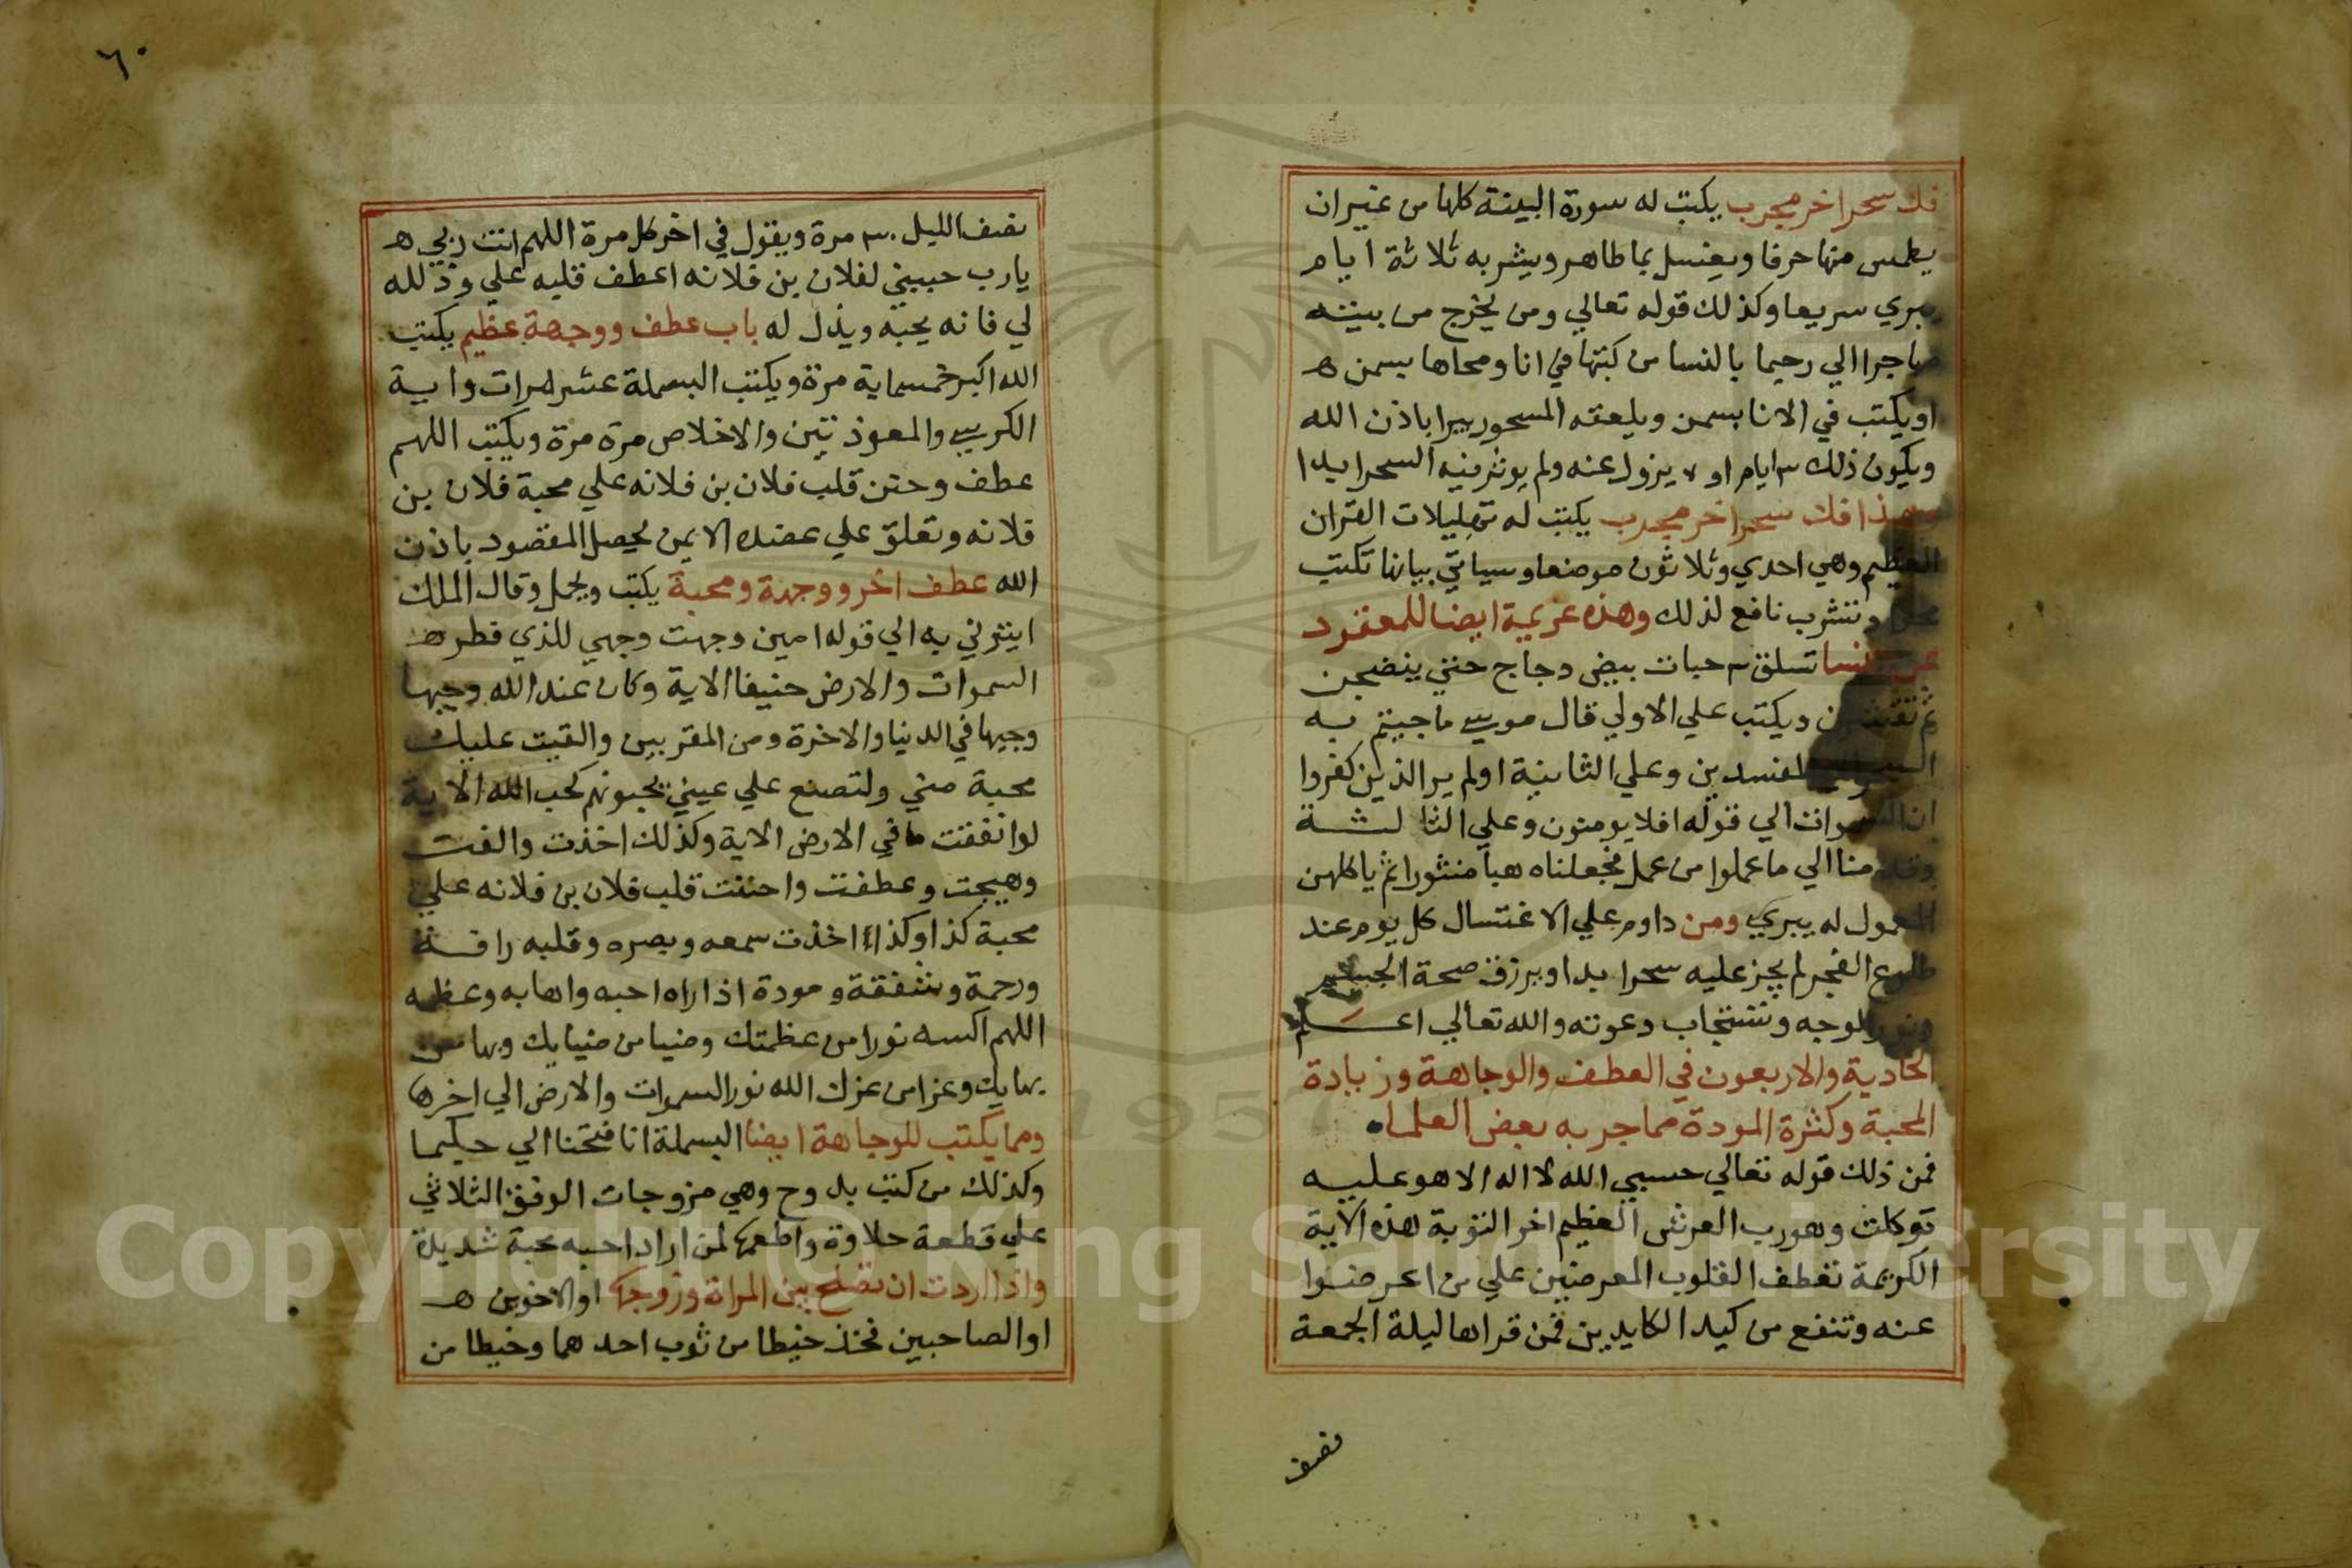 فك سحر اخر مجرب يكتب له سورة البينة كلها من غير ان
يطمس منها حرفا ويغسل بما طاهر ويشربه ثلاثة ايام
يبري سريعا وكذلك قوله تعالي ومن يخرج من بيته
مهاجرا الي رحيما بالنسا من كتبها في انا ومحاها بسمن ه
او يكتب في الانا بسمن ويلعقه المسحور يبرا باذن الله
ويكون ذلك ٣ ايام او ٧ يزول عنه ولم يوثر فيه السحر ابدا
وهذا فك سحر اخر مجرب يكتب له تهليلات القران
العظيم وهي احدي وثلاثون موضعا وسياتي بيانها تكتب
وتشرب نافع لذلك وهذه عزيمة ايضا للمعقود
عن النسا تسلق ٣ حبات بيض دجاج حتي ينضجن
ثم تقشرن ويكتب علي الاولي قال موسي ما جيتم به
السحر الي المفسدين وعلي الثانية اولم ير الذين كفروا
ان السموات الي قوله افلا يومنون وعلي الثالثة
وقدمنا الي ما عملوا من عمل فجعلناه هبا منثورا ثم ياكلهن
المعمول له يبري ومن داوم علي الاغتسال كل يوم عند
طلوع الفجر لم يجز عليه سحر ابدا ويرزق صحة الجسم
ونور الوجه وتستجاب دعوته والله تعالي اعلم
الحادية والاربعون في العطف والوجاهة وزيادة
المحبة وكثرة المودة مما جربه بعض العلما
فمن ذلك قوله تعالي حسبي الله لا اله الا هو عليه
توكلت وهو رب العرش العظيم اخر التوبة هذه الاية
الكريمة تعطف القلوب المعرضين علي من اعرضوا
عنه وتنفع من كيد الكايدين فمن قراها ليلة الجمعة
نصف
٦٠
نصف الليل ٣٠ مرة ويقول في اخر كل مرة اللهم انت ربي ه
يارب حببني لفلان بن فلانه اعطف قلبه علي وذلله
لي فانه يحبه ويذل له باب عطف ووجهة عظيم يكتب
الله اكبر خمسماية مرة ويكتب البسملة عشر مرات واية
الكرسي والمعوذتين والاخلاص مرة مرة ويكتب اللهم
عطف وحنن قلب فلان بن فلانه علي محبة فلان بن
فلانه وتعلق علي عضدك الايمن يحصل المقصود باذن
الله عطف اخر ووجهة ومحبة يكتب ويحمل وقال الملك
ايتوني به الي قوله امين وجهت وجهي للذي فطر ه
السموات والارض حنيفا الاية وكان عند الله وجيها
وجيها في الدنيا والاخرة ومن المقربين والقيت عليك
محبة مني ولتصنع علي عيني يحبونهم كحب الله الاية
لو انفقت ما في الارض الاية وكذلك اخذت والفت
وهيجت وعطفت واحننت قلب فلان بن فلانه علي
محبة كذا وكذا اخذت سمعه وبصره وقلبه رافة
ورحمة وشفقة ومودة اذا راه احبه واهابه وعظمه
اللهم اكسه نورا من عظمتك وضيا من ضيايك وبها من
بهايك وعزا من عزك الله نور السموات والارض الي اخرها
ومما يكتب للوجاهة ايضا البسملة انا فتحنا الي حكيما
وكذلك من كتب بدوح وهي مزوجات الوفق الثلاثي
علي قطعة حلاوة واطعمها لمن اراد احبه محبة شديدة
واذا اردت ان تصلح بين المراة وزوجها او الاخوين ه
او الصاحبين فخذ خيطا من ثوب احدهما وخيطا من
Copyright © King Saud University
1957